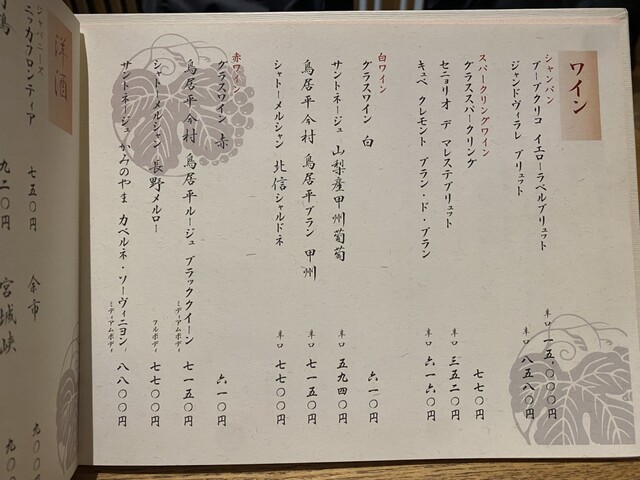 ワイン
シャンパン
ブーブクリコ イエローラベルブリュット 辛口 一五、〇〇〇円
ジャンドヴィラレ ブリュット 辛口 八五八〇円
スパークリングワイン
グラススパークリング 七七〇円
セニョリオ デ マレステブリュット 辛口 三五二〇円
キュベ クレモント ブラン・ド・ブラン 辛口 六一六〇円
白ワイン
グラスワイン 白 六一〇円
サントネージュ 山梨産甲州葡萄 辛口 五九四〇円
鳥居平今村 鳥居平ブラン 甲州 辛口 七一五〇円
シャトーメルシャン 北信シャルドネ 辛口 七七〇〇円
赤ワイン
グラスワイン 赤 六一〇円
鳥居平今村 鳥居平ルージュ ブラッククイーン ミディアムボディ 七一五〇円
シャトーメルシャン 長野メルロー フルボディ 七七〇〇円
サントネージュ かみのやま カベルネ・ソーヴィニヨン ミディアムボディ 八八〇〇円
洋酒
ジャパニーズ
ニッカフロンティア 七五〇円 余市 九〇〇円
九二〇円 宮城峡